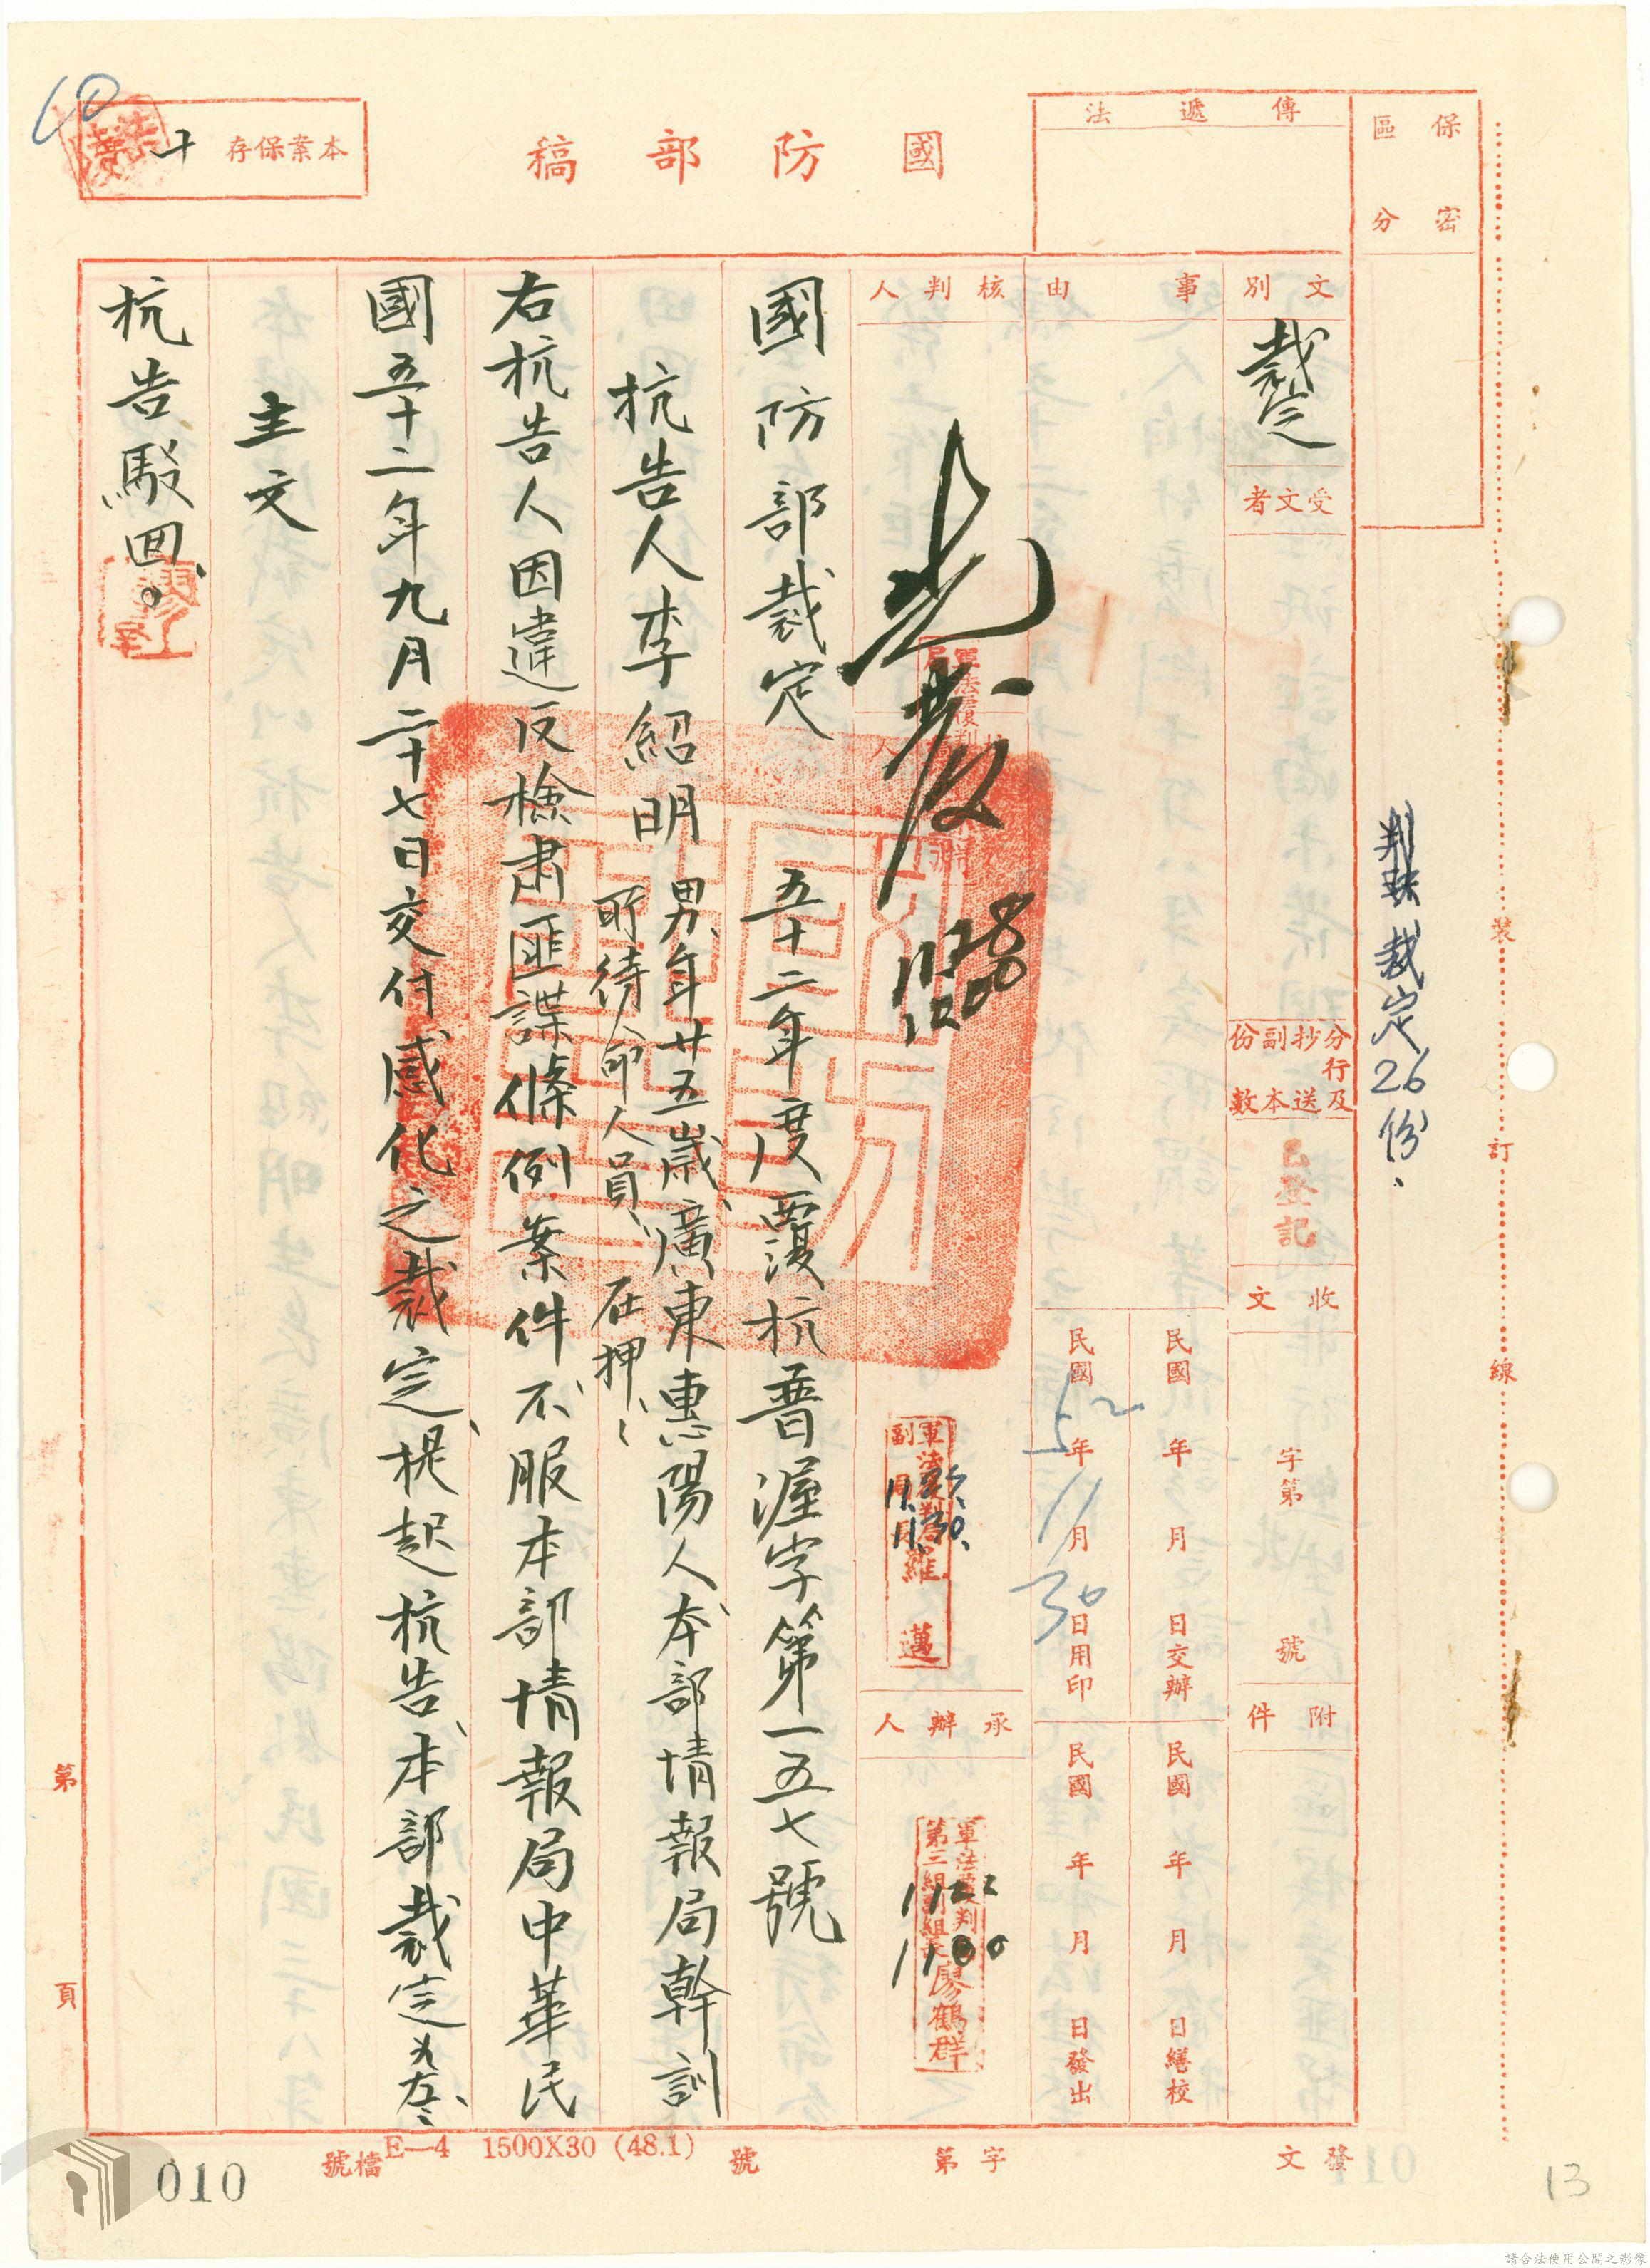 保密
區分
傳遞法
國防部稿
本案保存
十
文別
裁定
受文者
分行及
抄送
副本
份數
已登記
收文
字第
號
附件
事由
民國 年 月 日交辦
民國 年 月 日繕校
民國52年11月30日用印
民國 年 月 日發出
核判人
11.28
1200
軍法覆判局
副局長羅邁
11.30.
承辦人
軍法覆判局
第三組副組長廖鶴群
1122
1100
國防部裁定 五十二年度覆抗普渥字第一五七號
抗告人李紹明男、年廿五歲、廣東惠陽人本部情報局幹訓
所待命人員、在押、
右抗告人因違反檢肅匪諜條例案件不服本部情報局中華民
國五十二年九月二十七日交付感化之裁定、提起抗告、本部裁定為左、
主文
抗告駁回。
判決裁定26份.
裝
訂
線
第
頁
發文
字第
號
檔號
E—4 1500X30 (48.1)
010
13
請合法使用公開之影像